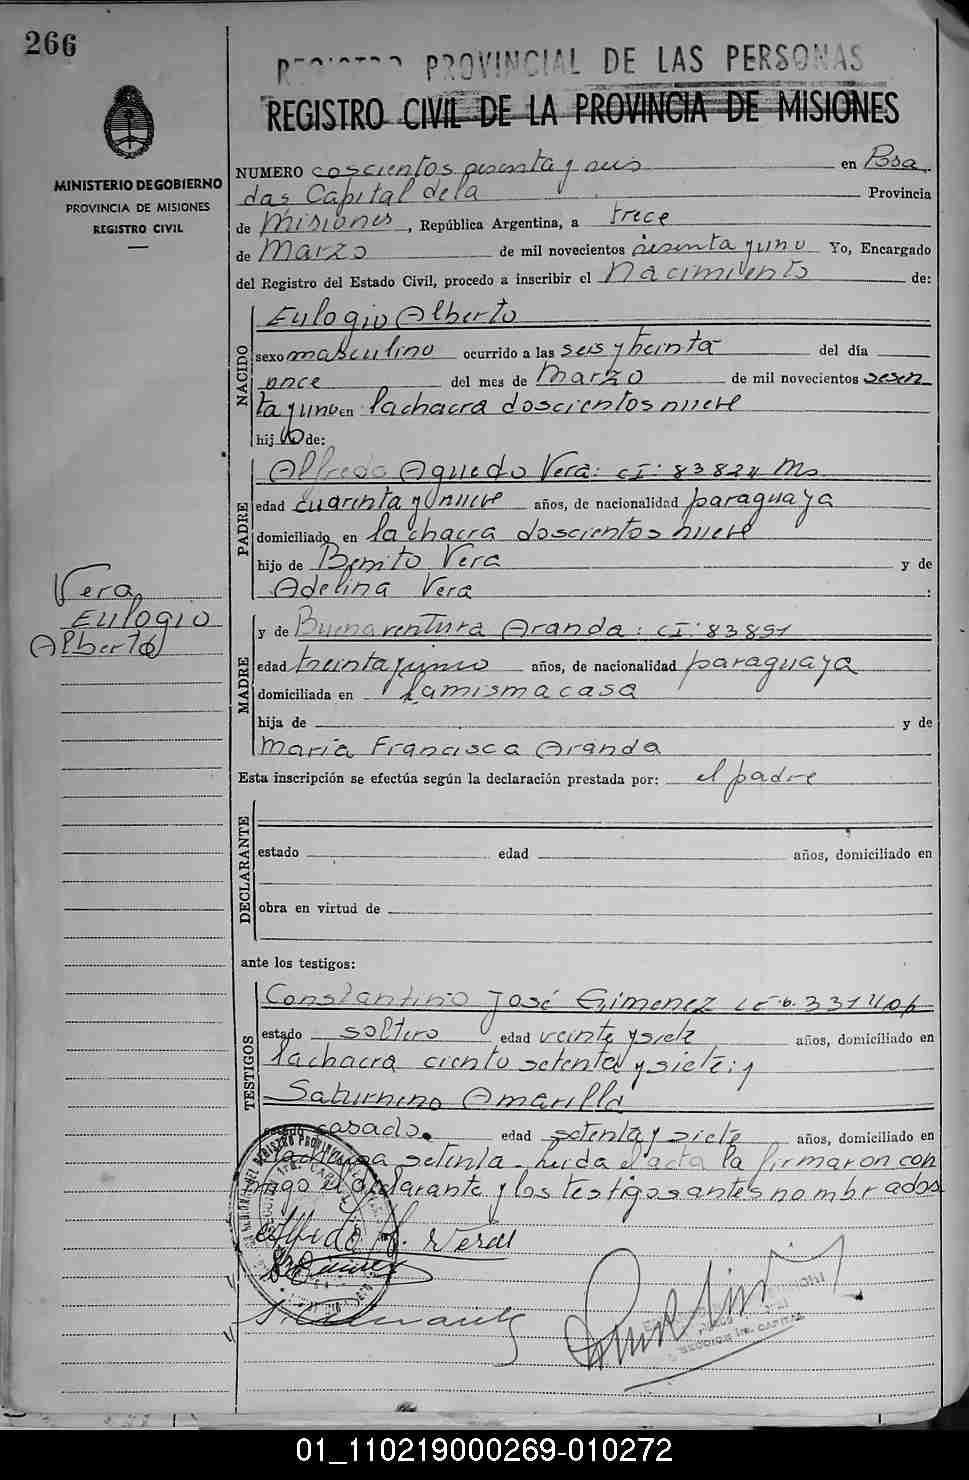 266
PROVINCIAL DE LAS PERSONAS
REGISTRO CIVIL DE LA PROVINCIA DE MISIONES
MINISTERIO DE GOBIERNO
PROVINCIA DE MISIONES
REGISTRO CIVIL
NUMERO doscientos sesenta y seis en Posa
das Capital de la Provincia
de Misiones, República Argentina, a trece
de Marzo de mil novecientos sesenta y uno Yo, Encargado
del Registro del Estado Civil, procedo a inscribir el Nacimiento de:
NACIDO
Eulogio Alberto
sexo masculino ocurrido a las seis y treinta del día
once del mes de Marzo de mil novecientos sesen
ta y uno en la chacra doscientos nueve
hijo de:
PADRE
Alfredo Aguedo Vera: CI: 83824 Ms
edad cuarenta y nueve años, de nacionalidad paraguaya
domiciliado en la chacra doscientos nueve
hijo de Benito Vera y de
Adelina Vera :
Vera
Eulogio
Alberto
MADRE
y de Buenaventura Aranda: CI: 83891
edad treinta y cinco años, de nacionalidad paraguaya
domiciliada en la misma casa
hija de y de
Maria Francisca Aranda
Esta inscripción se efectúa según la declaración prestada por: el padre
DECLARANTE
estado edad años, domiciliado en
obra en virtud de
ante los testigos:
TESTIGOS
Constantino José Gimenez
estado soltero edad veinte y siete años, domiciliado en
la chacra ciento setenta y siete: y
Saturnino Amarilla
estado casado. edad setenta y siete años, domiciliado en
la chacra setenta. Leida el acta la firmaron con
migo el declarante y los testigos antes nombrados
Alfredo A. Vera
SECCION 1ra. CAPITAL
01_110219000269-010272